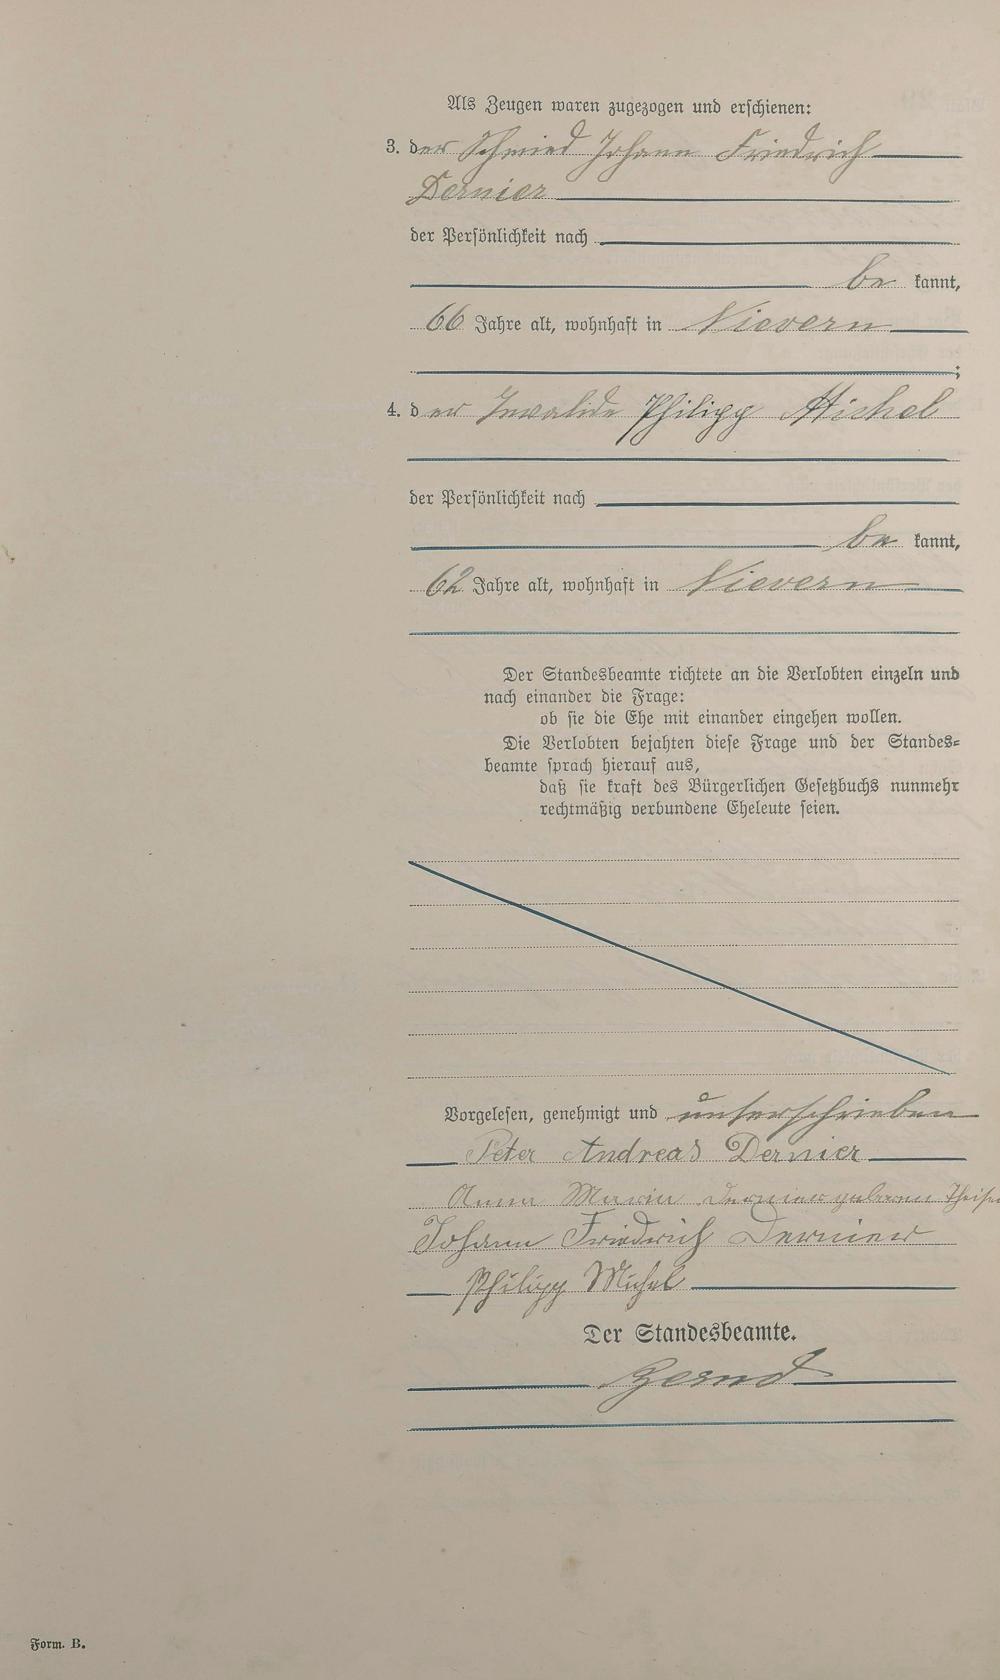 Als Zeugen waren zugezogen und erschienen:
3. der Schmied Johann Friedrich
Dernier
der Persönlichkeit nach
be kannt,
66 Jahre alt, wohnhaft in Nievern
;
4. der Invalide Philipp Michel
der Persönlichkeit nach
be kannt,
62 Jahre alt, wohnhaft in Nievern
Der Standesbeamte richtete an die Verlobten einzeln und
nach einander die Frage:
ob sie die Ehe mit einander eingehen wollen.
Die Verlobten bejahten diese Frage und der Standes-
beamte sprach hierauf aus,
daß sie kraft des Bürgerlichen Gesetzbuchs nunmehr
rechtmäßig verbundene Eheleute seien.
Vorgelesen, genehmigt und unterschrieben
Peter Andreas Dernier
Anna Maria Dernier geboren Theisen
Johann Friedrich Dernier
Philipp Michel
Der Standesbeamte.
Form. B.